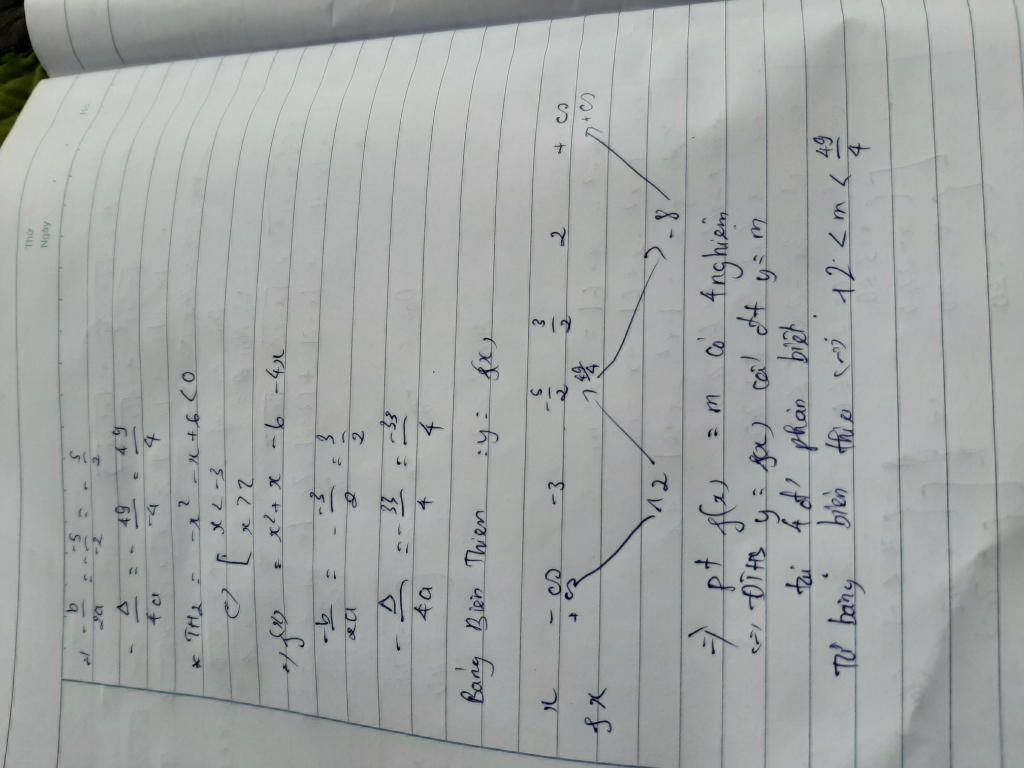 Thứ
Ngày
No.
=) - b/2a = - -5/-2 = - 5/2
- Δ/4a = - 49/-4 = 49/4
* TH2 = - x² - x + 6 < 0
(=) [ x < -3
x > 2
=) f(x) = x² + x - 6 - 4x
-b/2a = - -3/2 = 3/2
- Δ/4a = - 33/4 = -33/4
Bảng Biến Thiên : y = f(x)
x - ∞ -3 - 5/2 3/2 2 + ∞
fx + ∞ 12 49/4 - 8 + ∞
=) pt f(x) = m có 4 nghiệm
(=) ĐTHS y = f(x) cắt đt y = m
tại 4 đ' phân biệt
Từ bảng biến thiên (=) 12 < m < 49/4